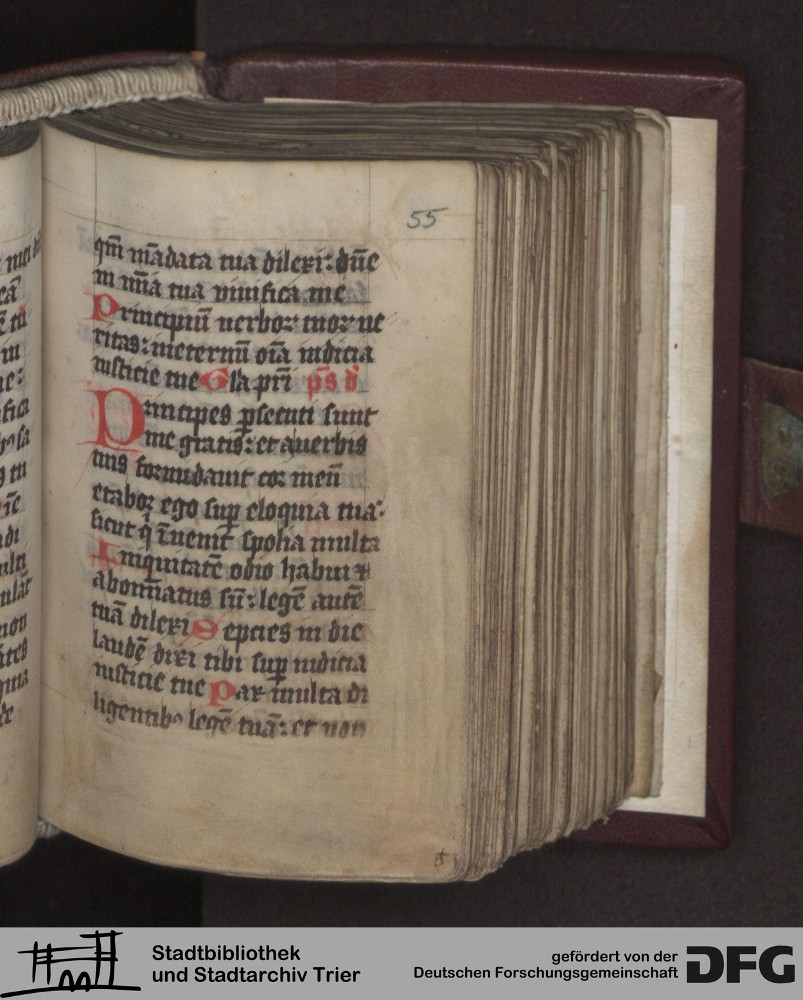 55
qm̄ mādata tua dilexi: dn̄e
in mīa tua viuifica me
Principiū uerboꝝ tuoꝝ ue
ritas: ineternū oīa iudicia
iusticie tue Gla pr̄i ps̄ d̄
Principes ꝑsecuti sunt
me gratis: et auerbis
tuis formidauit cor meū
etabor ego suꝑ eloquia tua:
sicut q̇ īuenit spolia multa
Iniquitatē odio habui ⁊
abomīatus sū: legē autē
tuā dilexi Sepcies in die
laudē dixi tibi suꝑ iudicia
iusticie tue Pax multa di
ligentibꝰ legē tuā: et non
Stadtbibliothek
und Stadtarchiv Trier
gefördert von der
Deutschen Forschungsgemeinschaft
DFG